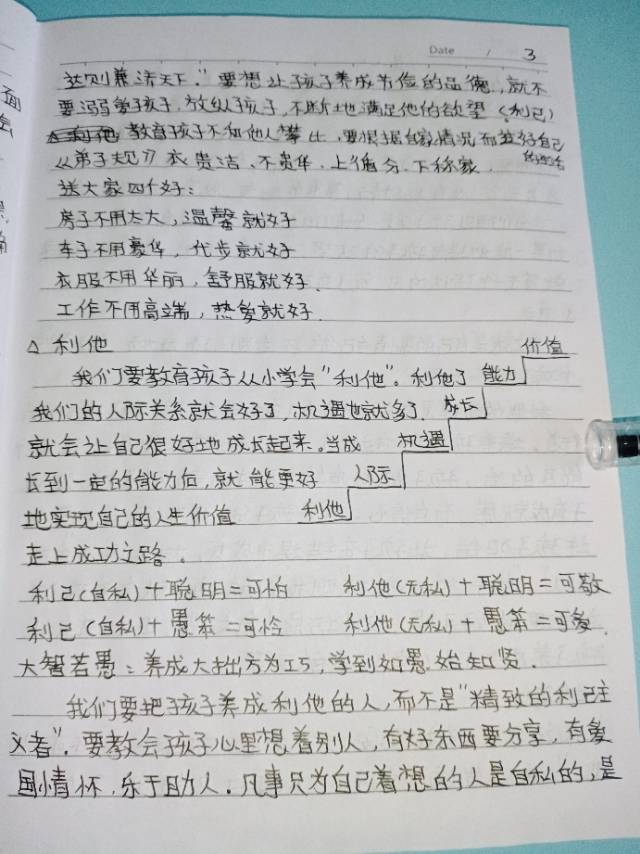 Date / 3
达则兼济天下。"要想让孩子养成节俭的品德,就不
要溺爱孩子,放纵孩子,不断地满足他的欲望(利己)
教育孩子不和他人攀比,要根据自家情况而
《弟子规》衣贵洁,不贵华,上循分,下称家.
送大家四个好:
房子不用太大,温馨就好
车子不用豪华,代步就好
衣服不用华丽,舒服就好.
工作不用高端,热爱就好.
△ 利他
价值
我们要教育孩子从小学会"利他"。利他了 能力
我们的人际关系就会好了,机遇也就多了, 成长
就会让自己很好地成长起来。当成 机遇
长到一定的能力后,就能更好 人际
地实现自己的人生价值 利他
走上成功之路.
利己(自私)+聪明=可怕 利他(无私)+聪明=可敬
利己(自私)+愚笨=可怜 利他(无私)+愚笨=可爱.
大智若愚:养成大拙方为巧,学到如愚始知贤.
我们要把孩子养成利他的人,而不是"精致的利己主
义者".要教会孩子心里想着别人,有好东西要分享,有爱
国情怀,乐于助人.凡事只为自己着想的人是自私的,是
面
会